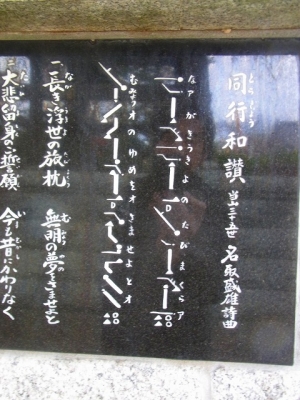 同行和讃 当山三十五世 名取盛雄詩曲
どうぎょう
なアがきうきよのたびまくらア
むみょうオのゆめをオさませよとオ
一、長き浮世の旅枕 無明の夢をさませよと
二、大悲留身のご誓願 今も昔にかわりなく